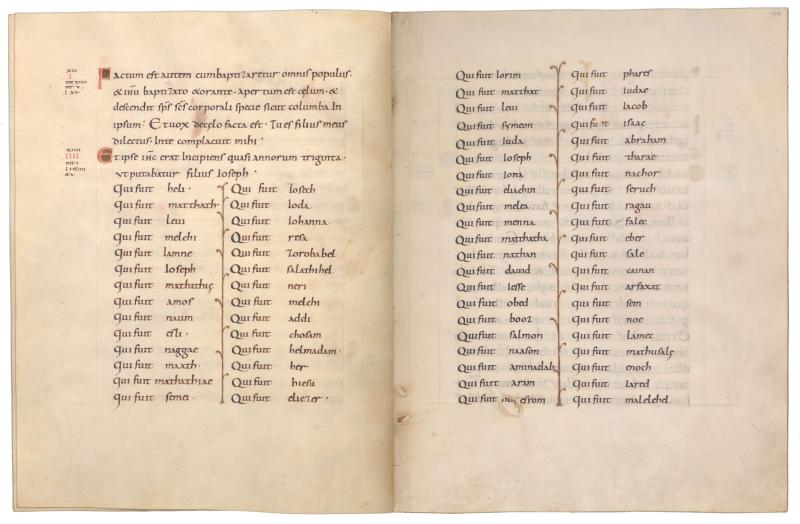 XIII
I
mt XIIII
mr V
I XV
Factum est autem cum baptizaretur omnis populus.
& ihu baptizato & orante. apertum est cęlum. &
descendit sps scs corporali specie sicut columba In
ipsum. Et vox de cęlo facta est. Tu es filius meus
dilectus. Inte complacuit mihi.
XIIII
IIII
Et ipse ihc erat Incipiens quasi annorum triginta.
ut putabatur filius Ioseph.
Qui fuit heli.
Qui fuit matthath
Qui fuit leui
Qui fuit melchi
Qui fuit Iamne
Qui fuit Ioseph
Qui fuit mathathię
Qui fuit amos
Qui fuit naum
Qui fuit esli.
Qui fuit naggae
Qui fuit maath.
Qui fuit mathathiae
Qui fuit semei.
Qui fuit Iosech
Qui fuit Ioda.
Qui fuit Iohanna
Qui fuit resa
Qui fuit zorobabel
Qui fuit salathihel
Qui fuit neri
Qui fuit melchi
Qui fuit addi
Qui fuit chosam
Qui fuit helmadam.
Qui fuit her.
Qui fuit hiesu
Qui fuit eliezer.
Qui fuit Iorim
Qui fuit matthat
Qui fuit leui
Qui fuit symeon
Qui fuit Iuda
Qui fuit Ioseph
Qui fuit Iona
Qui fuit eliachin
Qui fuit melea
Qui fuit menna
Qui fuit matthatha
Qui fuit nathan
Qui fuit dauid
Qui fuit Iesse
Qui fuit obed
Qui fuit booz
Qui fuit salmon
Qui fuit naason
Qui fuit aminadab
Qui fuit aram
Qui fuit esrom
Qui fuit phares
Qui fuit Iudae
Qui fuit Iacob
Qui fuit Isaac
Qui fuit abraham
Qui fuit tharae
Qui fuit nachor
Qui fuit seruch
Qui fuit ragau
Qui fuit falec
Qui fuit eber
Qui fuit sale
Qui fuit cainan
Qui fuit arfaxat
Qui fuit sem
Qui fuit noe
Qui fuit Lamec
Qui fuit mathusalę
Qui fuit enoch
Qui fuit Iared
Qui fuit malelehel